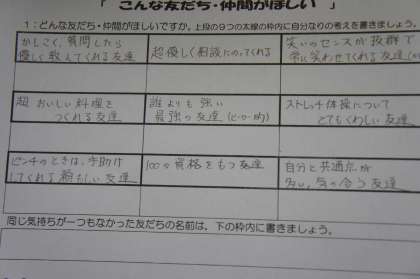 「 こんな友だち・仲間がほしい 」
1：どんな友だち・仲間がほしいですか。上段の9つの太線の枠内に自分なりの考えを書きましょう。
かしこく、質問したら
優しく教えてくれる友達
超優しく相談にのってくれる
笑いのセンスが抜群で
常に笑わせてくれる友達
超 おいしい料理を
つくれる友達
誰よりも強い
最強の友達(ヒーロー的)
ストレッチ体操について
とてもくわしい友達
ピンチのときは、手助け
してくれる頼もしい友達
100の資格をもつ友達
自分と共通点が
多い、気の合う友達
同じ気持ちが一つもなかった友だちの名前は、下の枠内に書きましょう。